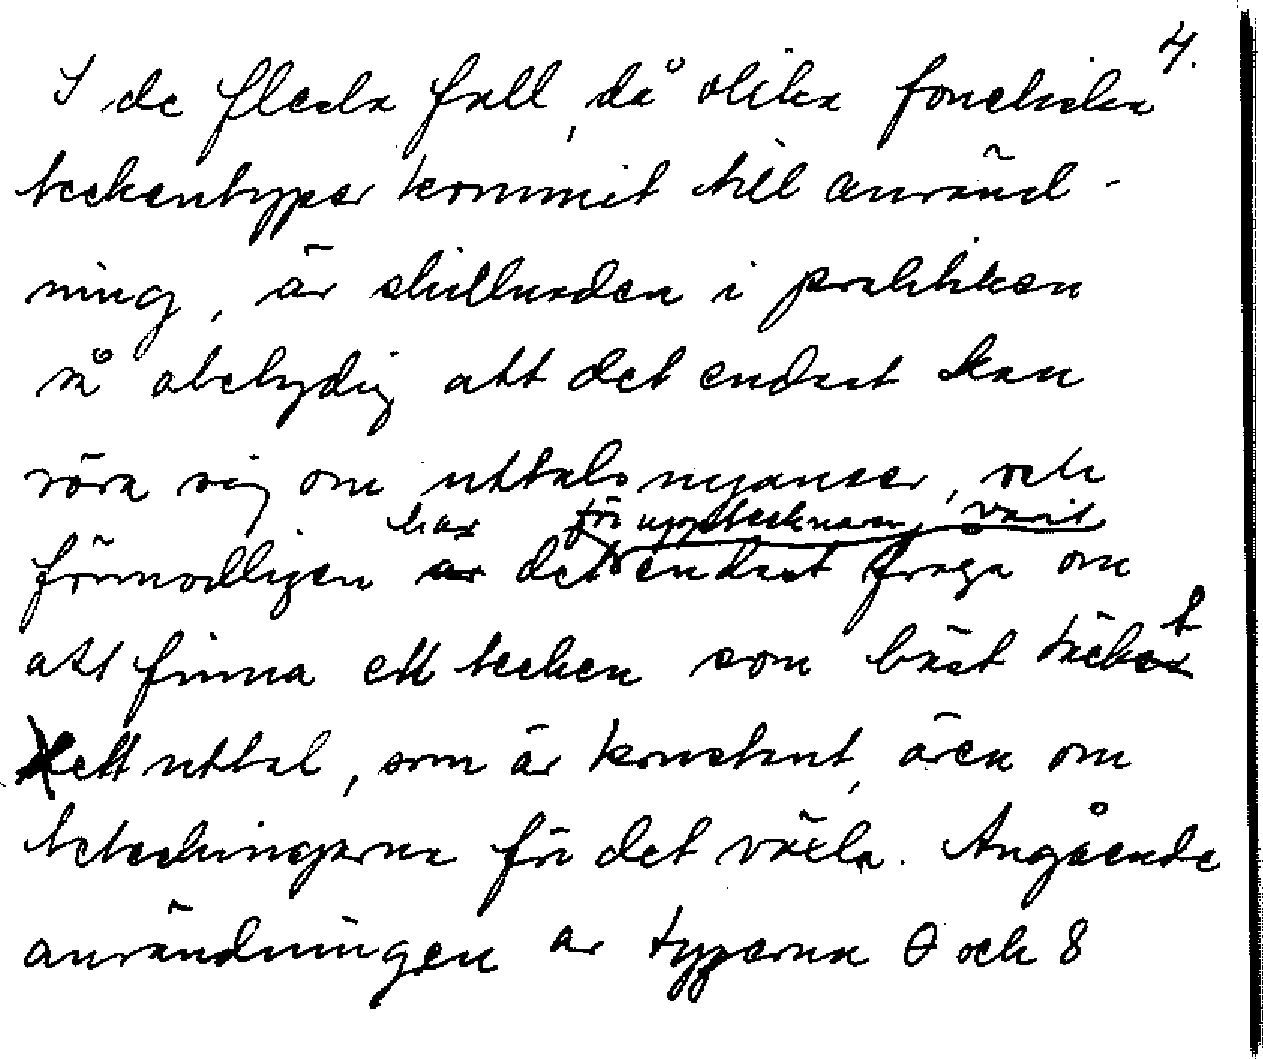 4.
I de flesta fall, då olika fonetiska
teckentyper kommit till använd-
ning, är skillnaden i praktiken
så obetydlig att det endast kan
röra sig om uttalsnyanser, och
har för upptecknaren varit
förmodligen är det endast fråga om
att finna ett tecken som bäst täckt
ett uttal, som är konstant, även om
beteckningarna för det växla. Angående
användningen av typerna θ och 8